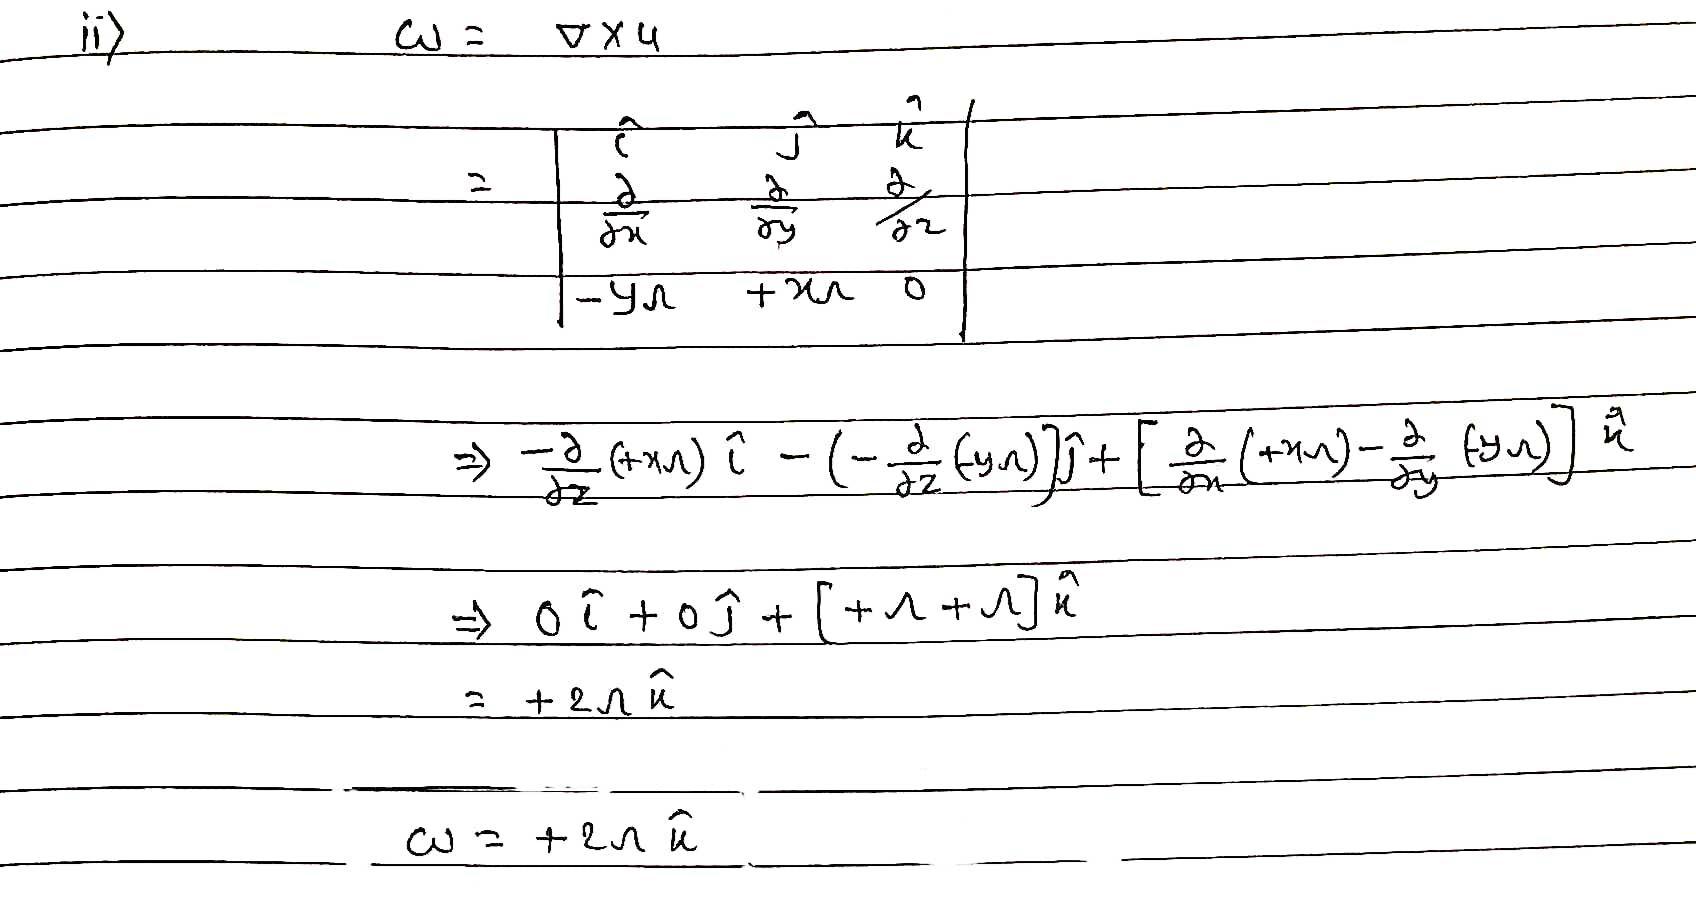 ii) ω = ∇ × u
= | î ĵ k̂ |
| ∂/∂x ∂/∂y ∂/∂z |
| -yΩ +xΩ 0 |
⇒ -∂/∂z (+xΩ) î - (-∂/∂z (-yΩ)] ĵ + [∂/∂x (+xΩ) - ∂/∂y (-yΩ)] k̂
⇒ 0 î + 0 ĵ + [+Ω + Ω] k̂
= +2Ω k̂
ω = +2Ω k̂